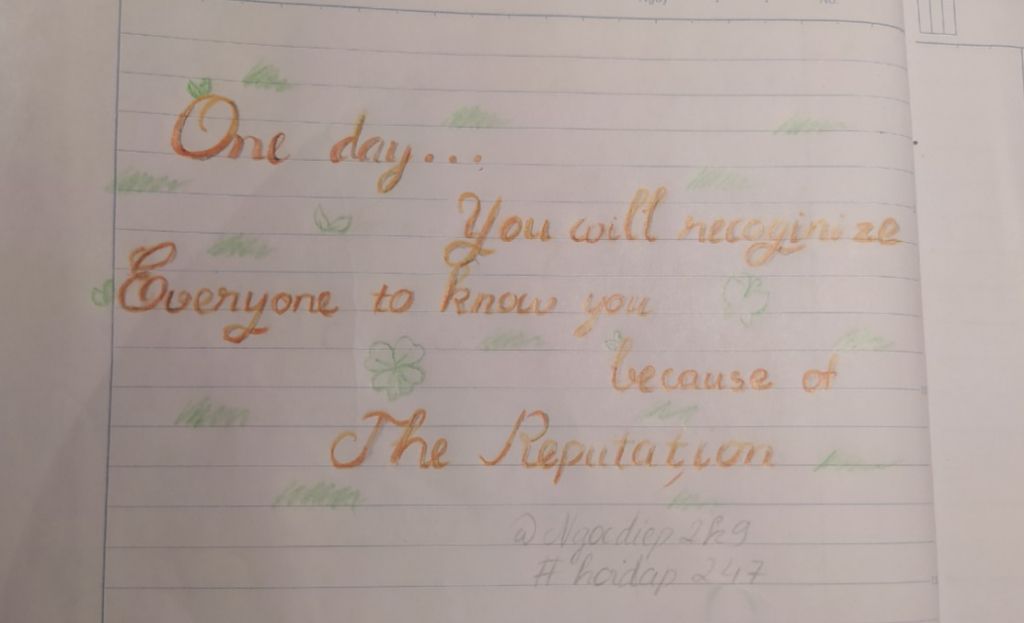 One day...
You will recoginize
Everyone to know you
because of
The Reputation
@Ngocdiep2k9
# hoidap247